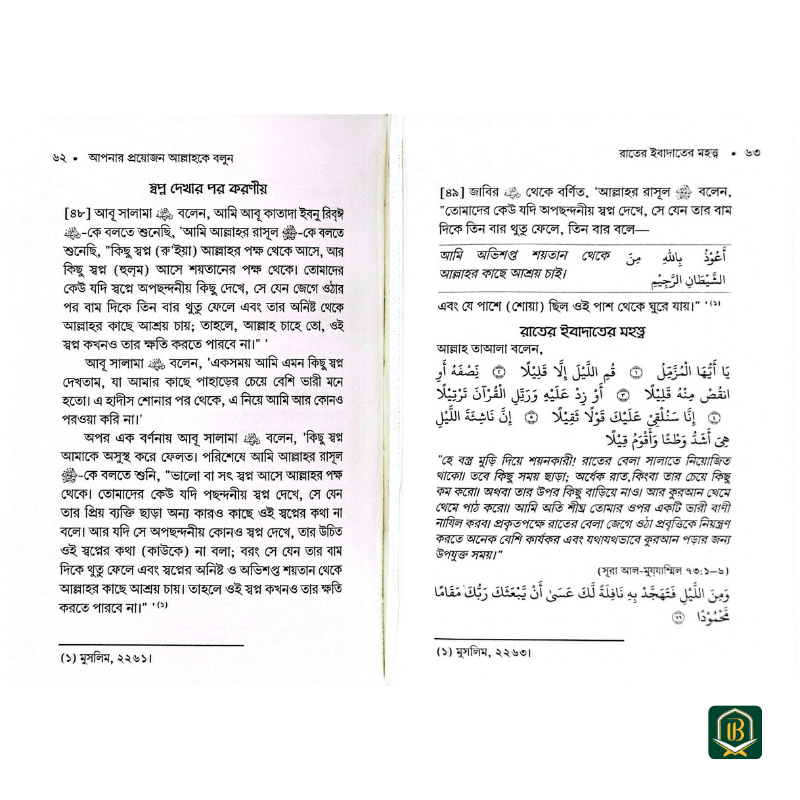 ৬২ • আপনার প্রয়োজন আল্লাহকে বলুন
স্বপ্ন দেখার পর করণীয়
[৪৮] আবূ সালামা ﷺ বলেন, আমি আবূ কাতাদা ইবনু রিব্‌ঈ
-কে বলতে শুনেছি, 'আমি আল্লাহর রাসূল ﷺ-কে বলতে
শুনেছি, "কিছু স্বপ্ন (রু'ইয়া) আল্লাহর পক্ষ থেকে আসে, আর
কিছু স্বপ্ন (হুল্‌ম) আসে শয়তানের পক্ষ থেকে। তোমাদের
কেউ যদি স্বপ্নে অপছন্দনীয় কিছু দেখে, সে যেন জেগে ওঠার
পর বাম দিকে তিন বার থুতু ফেলে এবং তার অনিষ্ট থেকে
আল্লাহর কাছে আশ্রয় চায়; তাহলে, আল্লাহ চাহে তো, ওই
স্বপ্ন কখনও তার ক্ষতি করতে পারবে না।" '
আবূ সালামা বলেন, 'একসময় আমি এমন কিছু স্বপ্ন
দেখতাম, যা আমার কাছে পাহাড়ের চেয়ে বেশি ভারী মনে
হতো। এ হাদীস শোনার পর থেকে, এ নিয়ে আমি আর কোনও
পরওয়া করি না।'
অপর এক বর্ণনায় আবূ সালামা বলেন, 'কিছু স্বপ্ন
আমাকে অসুস্থ করে ফেলত। পরিশেষে আমি আল্লাহর রাসূল
ﷺ-কে বলতে শুনি, "ভালো বা সৎ স্বপ্ন আসে আল্লাহর পক্ষ
থেকে। তোমাদের কেউ যদি পছন্দনীয় স্বপ্ন দেখে, সে যেন
তার প্রিয় ব্যক্তি ছাড়া অন্য কারও কাছে ওই স্বপ্নের কথা না
বলে। আর যদি সে অপছন্দনীয় কোনও স্বপ্ন দেখে, তার উচিত
ওই স্বপ্নের কথা (কাউকে) না বলা; বরং সে যেন তার বাম
দিকে থুতু ফেলে এবং স্বপ্নের অনিষ্ট ও অভিশপ্ত শয়তান থেকে
আল্লাহর কাছে আশ্রয় চায়। তাহলে ওই স্বপ্ন কখনও তার ক্ষতি
করতে পারবে না।" '(১)
(১) মুসলিম, ২২৬১।
রাতের ইবাদাতের মহত্ত্ব • ৬৩
[৪৯] জাবির থেকে বর্ণিত, 'আল্লাহর রাসূল ﷺ বলেন,
"তোমাদের কেউ যদি অপছন্দনীয় স্বপ্ন দেখে, সে যেন তার বাম
দিকে তিন বার থুতু ফেলে, তিন বার বলে—
আমি অভিশপ্ত শয়তান থেকে
আল্লাহর কাছে আশ্রয় চাই।
أَعُوْذُ بِاللهِ مِنَ
الشَّيْطَانِ الرَّجِيْمِ
এবং যে পাশে (শোয়া) ছিল ওই পাশ থেকে ঘুরে যায়।" '(১)
রাতের ইবাদাতের মহত্ত্ব
আল্লাহ তাআলা বলেন,
يَا أَيُّهَا الْمُزَّمِّلُ ﴿١﴾ قُمِ اللَّيْلَ إِلَّا قَلِيْلًا ﴿٢﴾ نِّصْفَهُ أَوِ
انقُصْ مِنْهُ قَلِيْلًا ﴿٣﴾ أَوْ زِدْ عَلَيْهِ وَرَتِّلِ الْقُرْآنَ تَرْتِيْلًا
﴿٤﴾ إِنَّا سَنُلْقِيْ عَلَيْكَ قَوْلًا ثَقِيْلًا ﴿٥﴾ إِنَّ نَاشِئَةَ اللَّيْلِ
هِيَ أَشَدُّ وَطْئًا وَأَقْوَمُ قِيْلًا
"হে বস্ত্র মুড়ি দিয়ে শয়নকারী! রাতের বেলা সালাতে নিয়োজিত
থাকো। তবে কিছু সময় ছাড়া; অর্ধেক রাত,কিংবা তার চেয়ে কিছু
কম করো। অথবা তার উপর কিছু বাড়িয়ে নাও। আর কুরআন থেমে
থেমে পাঠ করো। আমি অতি শীঘ্র তোমার ওপর একটি ভারী বাণী
নাযিল করব। প্রকৃতপক্ষে রাতের বেলা জেগে ওঠা প্রবৃত্তিকে নিয়ন্ত্রণ
করতে অনেক বেশি কার্যকর এবং যথাযথভাবে কুরআন পড়ার জন্য
উপযুক্ত সময়।"
(সূরা আল-মুয্‌যাম্মিল ৭৩:১–৬)
وَمِنَ اللَّيْلِ فَتَهَجَّدْ بِهِ نَافِلَةً لَّكَ عَسَىٰ أَنْ يَّبْعَثَكَ رَبُّكَ مَقَامًا
مَّحْمُوْدًا ﴿٧٩﴾
(১) মুসলিম, ২২৬৩।